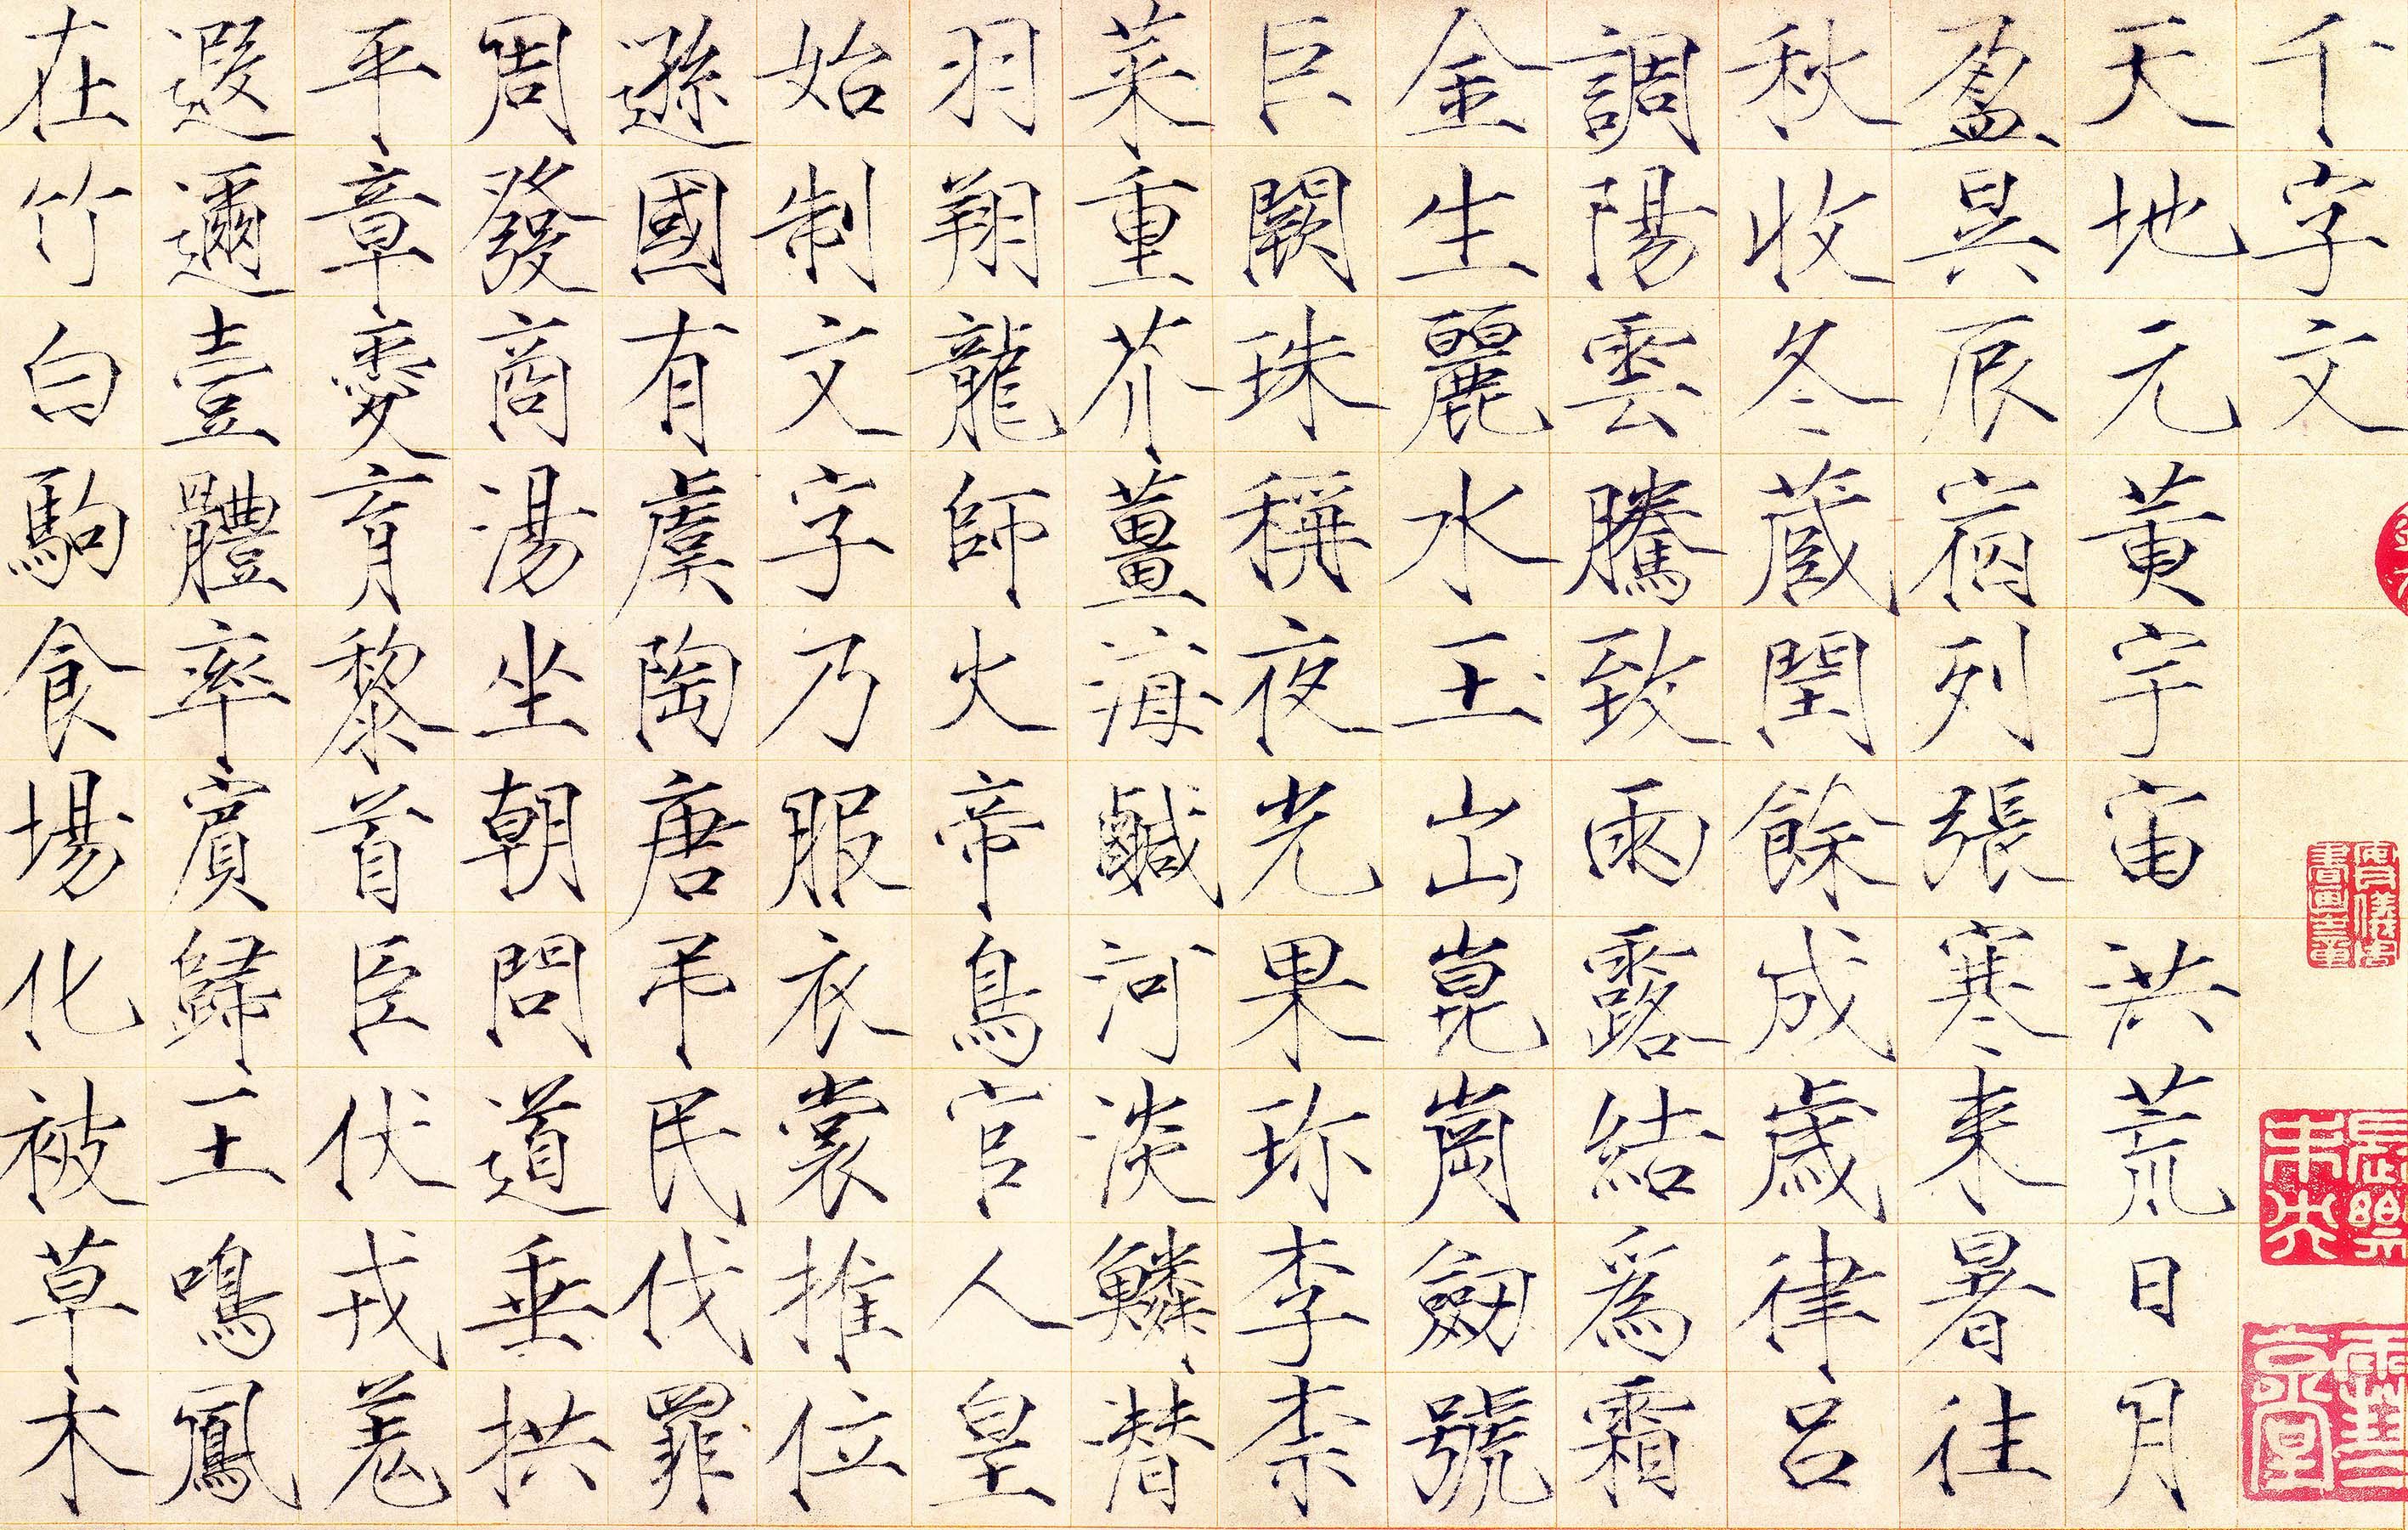 千字文
天地元黃宇宙洪荒日月
盈昃辰宿列張寒来暑往
秋收冬蔵閏餘成歲律呂
調陽雲騰致雨露結爲霜
金生麗水玉出崑崗劔號
巨闕珠稱夜光果珎李柰
菜重芥薑海鹹河淡鱗潛
羽翔龍師火帝鳥官人皇
始制文字乃服衣裳推位
遜國有虞陶唐弔民伐罪
周發商湯坐朝問道垂拱
平章愛育黎首臣伏戎羌
遐邇壹體率賓歸王鳴鳳
在竹白駒食場化被草木